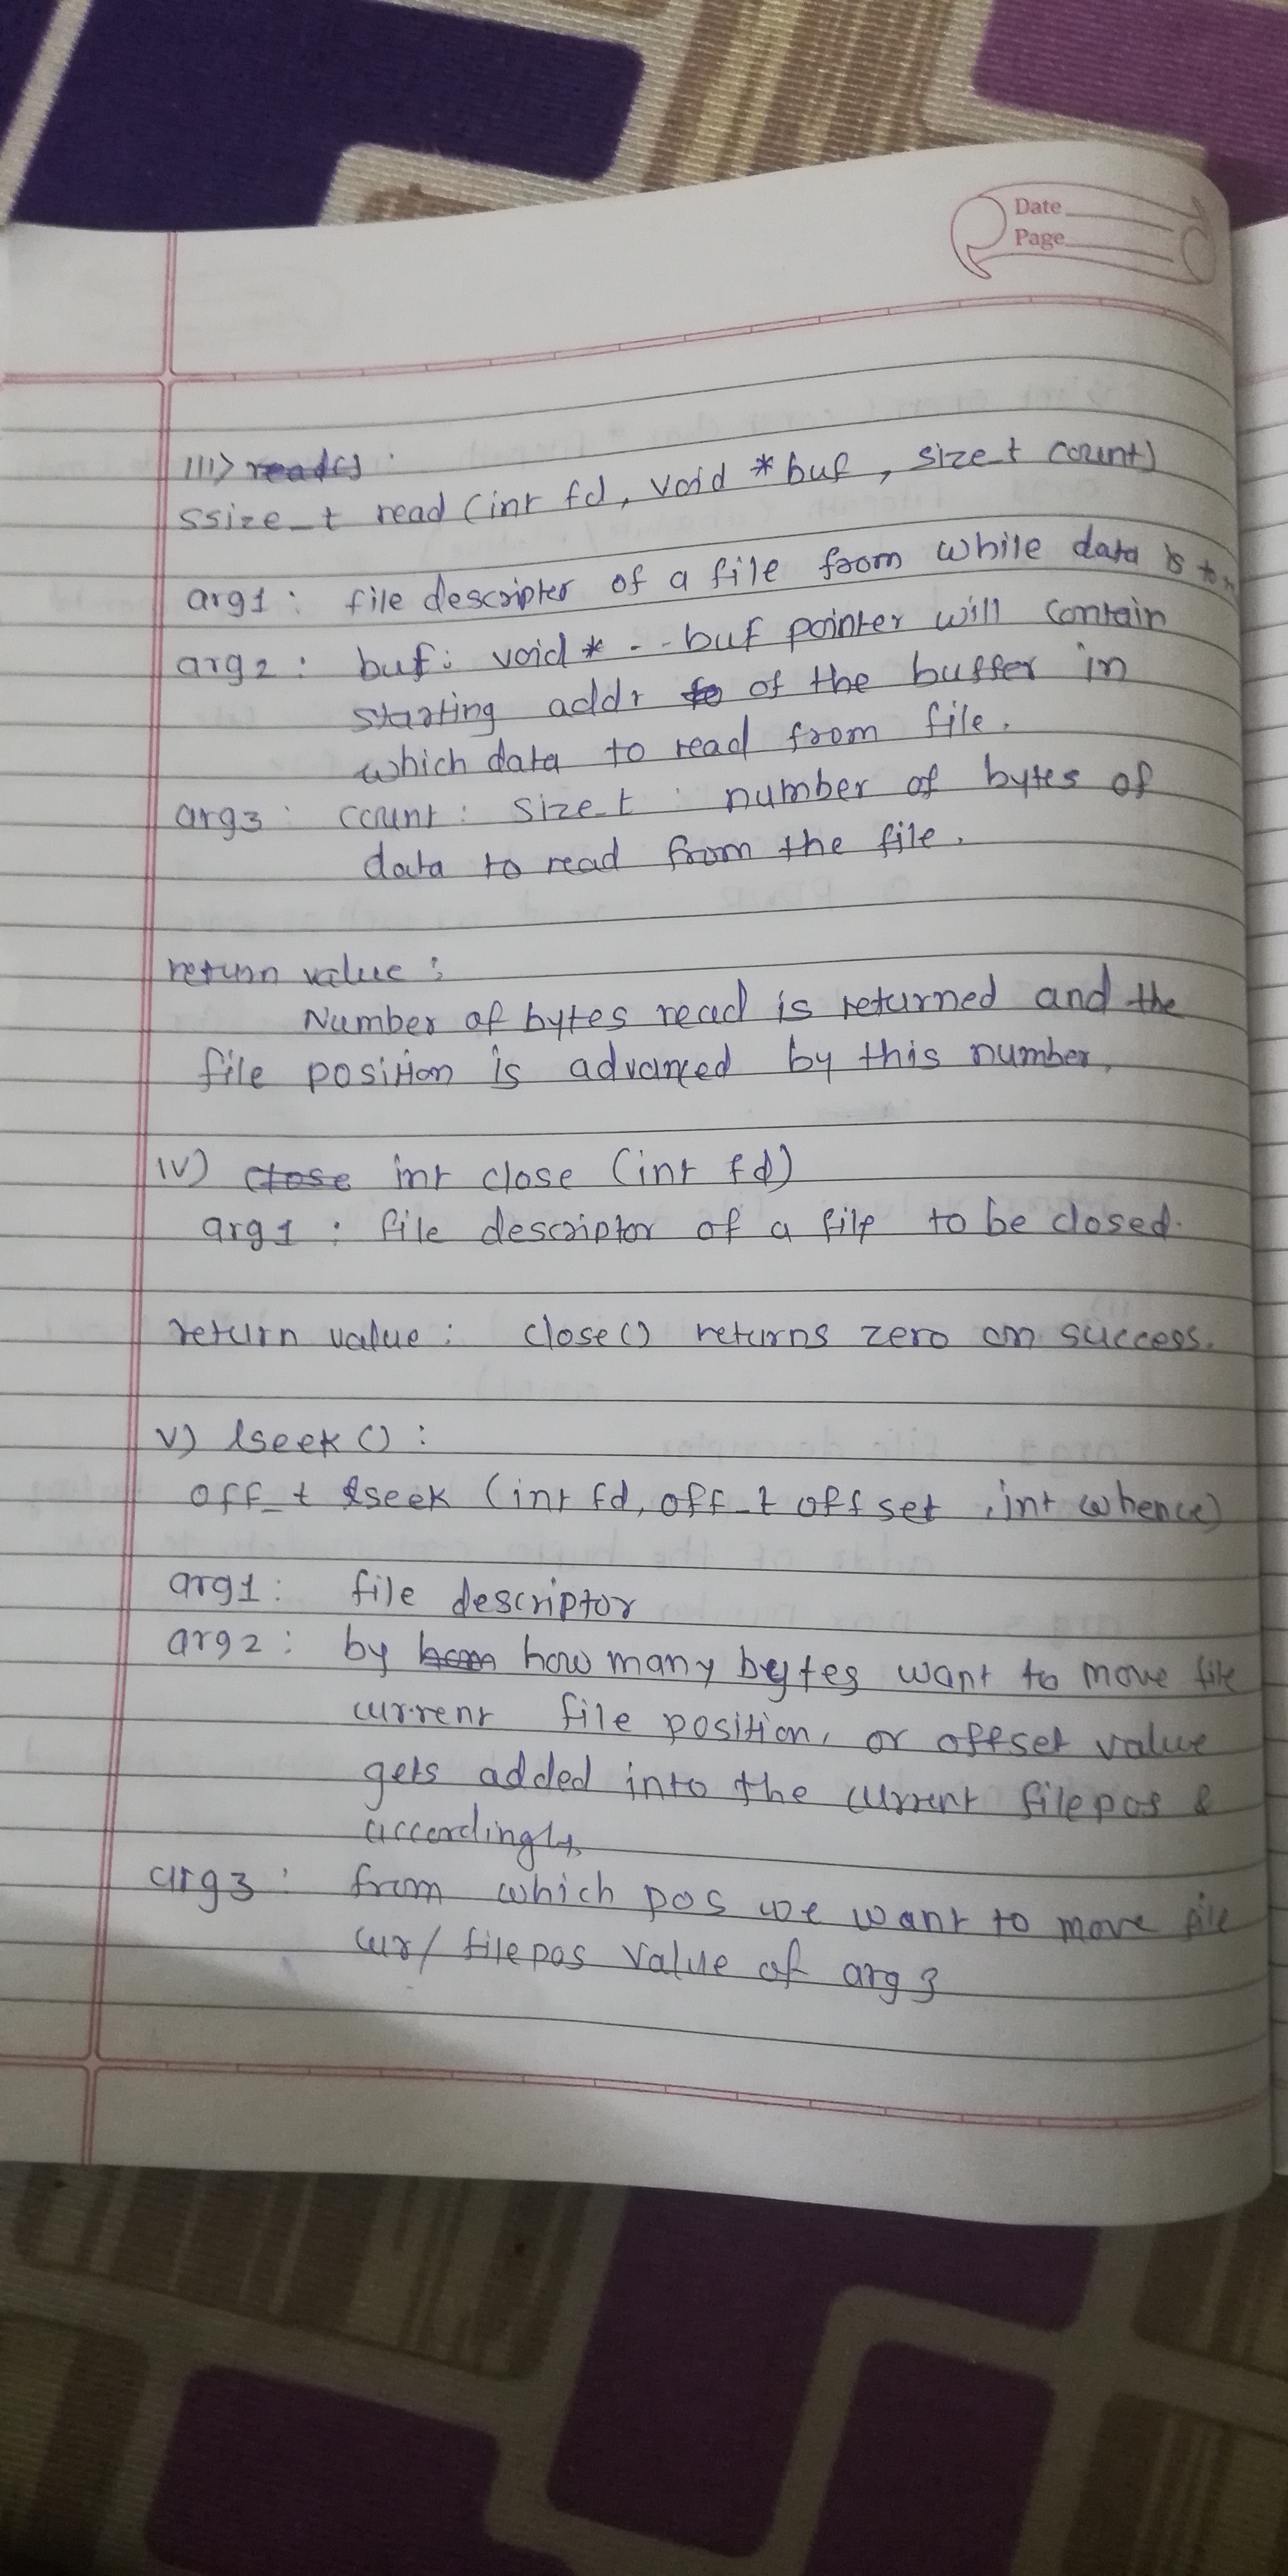 Date
Page
III> read():
ssize_t read (int fd, void *buf, size_t count)
arg1: file descripter of a file from while data is to
arg2: buf: void* -- buf pointer will contain
starting addr of the buffer in
which data to read from file.
arg3: count: size_t: number of bytes of
data to read from the file.
return value:
Number of bytes read is returned and the
file position is advanced by this number.
IV) close int close (int fd)
arg1: file descriptor of a file to be closed.
return value: close() returns zero on success.
V) lseek():
off_t lseek (int fd, off_t offset, int whence)
arg1: file descriptor
arg2: by how many bytes want to move file
current file position, or offset value
gets added into the current filepos &
accordingly
arg3: from which pos we want to move file
cur/filepos value of arg3